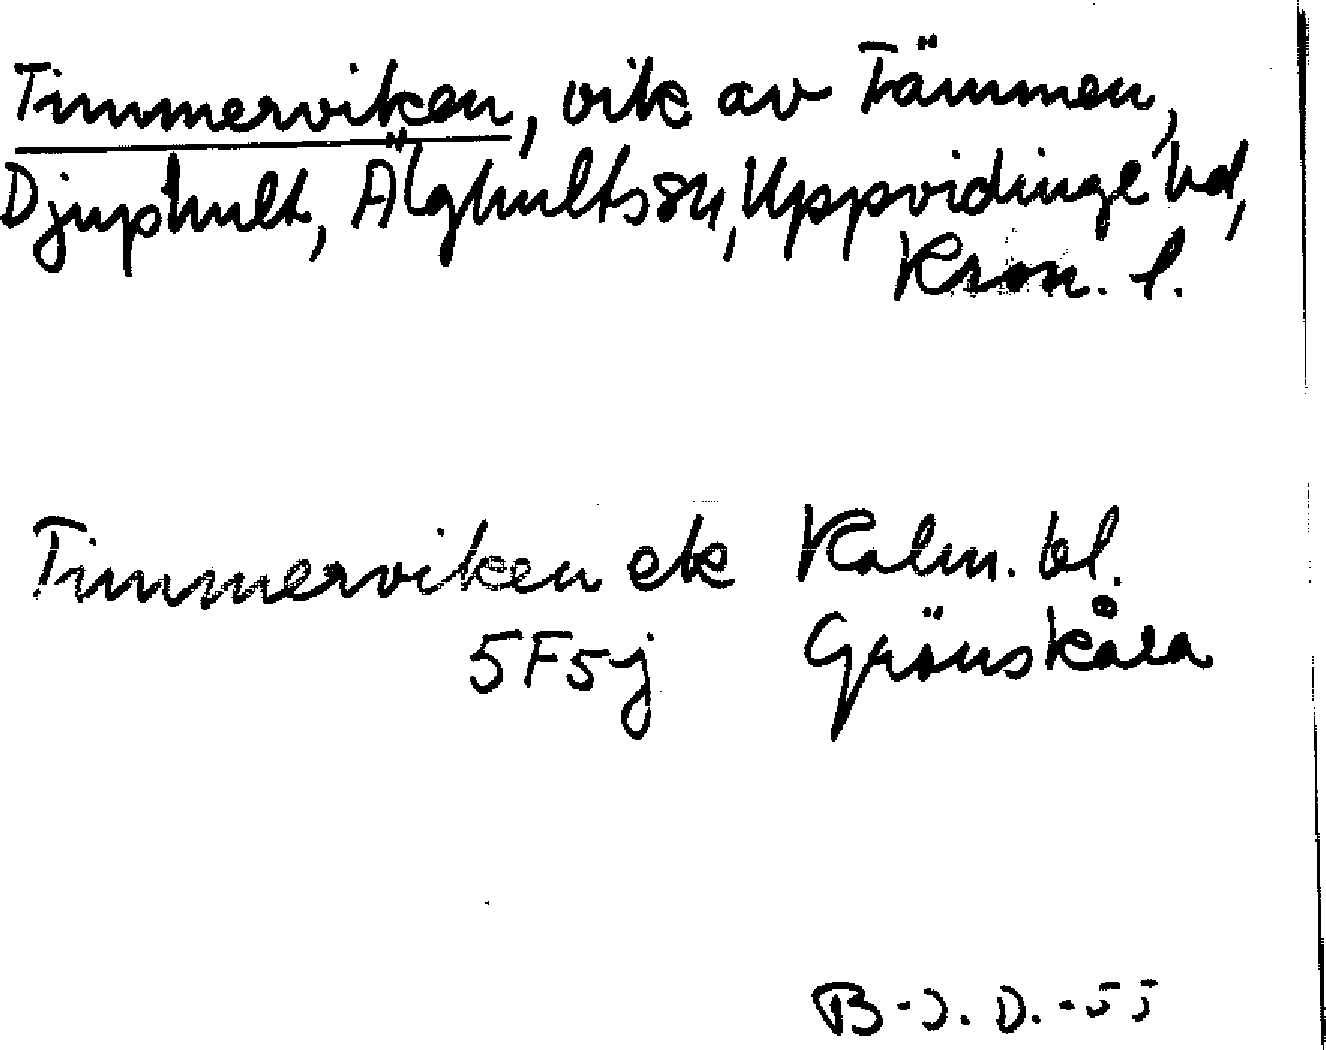 Timmerviken, vik av Tämmen,
Djuphult, Älghults sn, Uppvidinge hd,
Kron. l.
Timmerviken ek Kalm. bl.
5F5j Grönskåra
B-J. D. -55